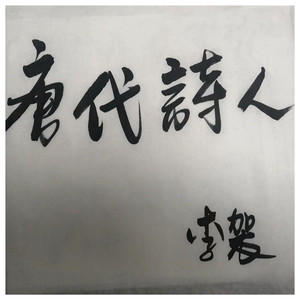 唐代詩人
李袈